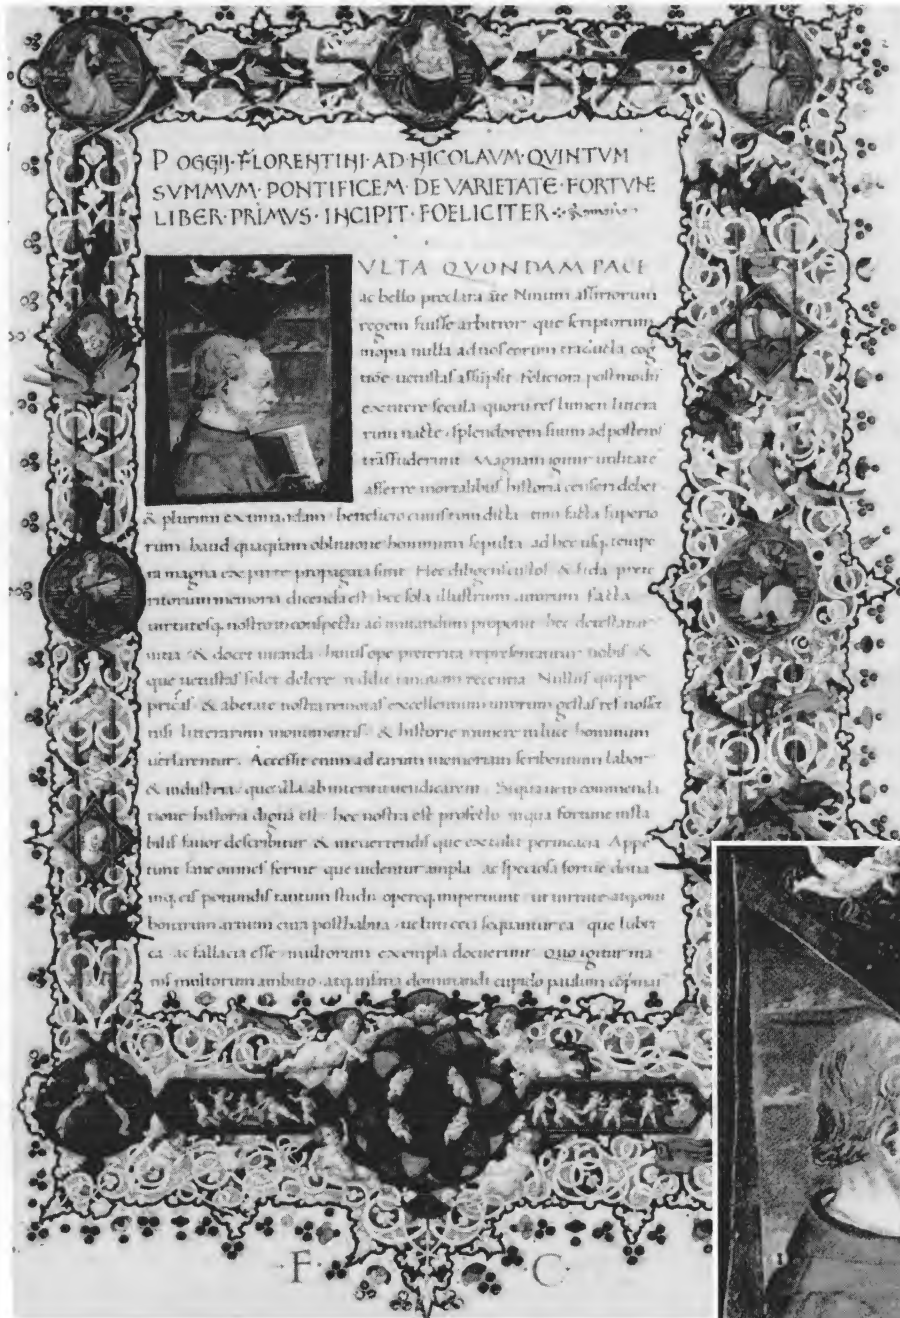 POGGIJ·FLORENTINI·AD·NICOLAVM·QVINTVM
SVMMVM·PONTIFICEM·DE VARIETATE·FORTVNE
LIBER·PRIMVS·INCIPIT·FOELICITER
VLTA QVONDAM PACE
ac bello preclara ãte Ninum assiriorum
regem fuisse arbitror que scriptorum
inopia nulla ad nos eorum traducta cog
uetustas Feliciora
extitere secula quorũ res lumen littera
rum splendorem suum ad posteros
trãsfuderunt Magnam igitur utilitatẽ
afferre mortalibus historia censeri debet
& plurimi beneficio cuius tum dicta tum facta superio
rum haud quaquam obliuione hominum sepulta ad hec usq; tempo
ra magna ex parte propagata sint Hec & fida prete
ritorum memoria dicenda est hec sola illustrium uirorum facta
uirtutesq; nostrum conspectu ad imitandum proponit hec detestatur
uitia & docet uitanda huius ope preterita representantur nobis &
que uetustas solet delere reddit tanquam recentia Nullus quippe
priscas & ab etate nostra remotas excellentium uirorum gestas res nosset
nisi litterarum monumentis & historie munere in luce hominum
uersarentur. Accessit enim ad earum memoriam scribentium labor
& industria que illa ab interitu uendicarent Siqua uero commenda
tione historia digna est hec nostra est profecto in qua fortune insta
bilis fauor describitur & in euertendis que extulit peruicacia Appe
tunt sane omnes ferme que uidentur ampla ac speciosa fortũe dona
inq; eis potiundis tantum studii opereq; impertiunt ut uirtute atq;
bonarum artium cura posthabita uelut ceci sequantur ea que lubri
ca ac fallacia esse multorum exempla docuerunt Quo igitur
multorum ambitio atq; insana dominandi cupido paulum
·F· C·
1